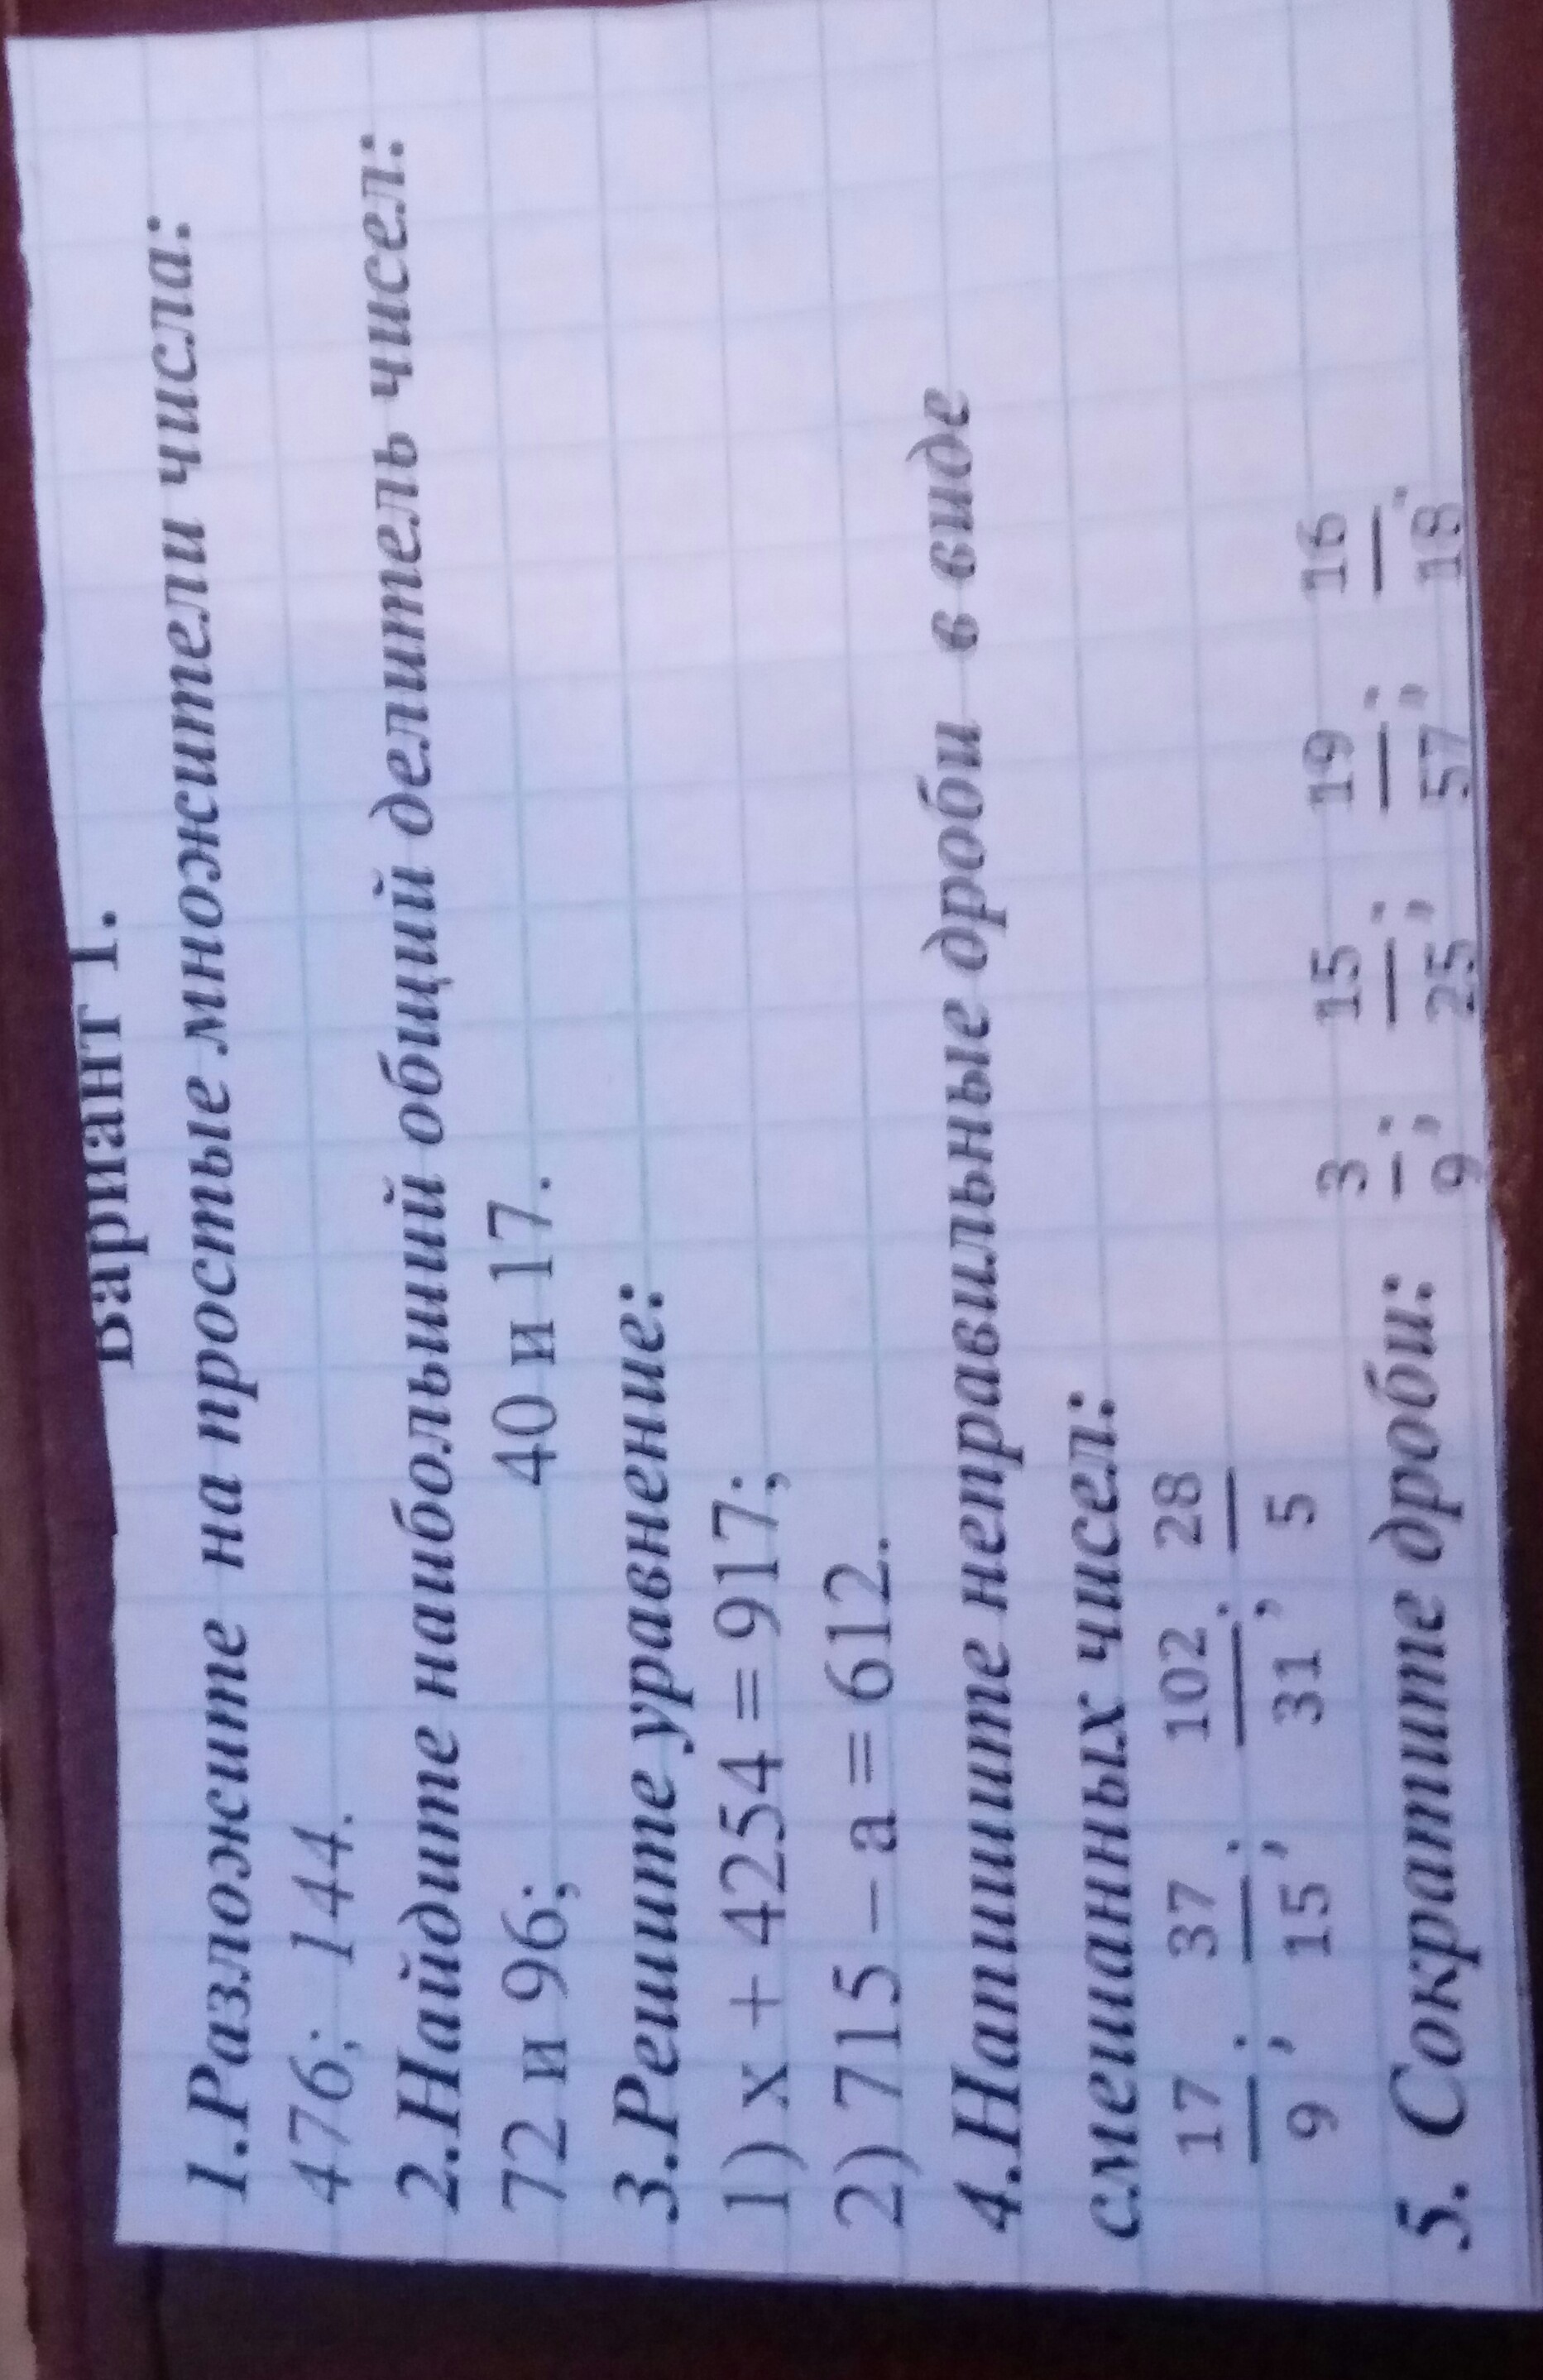 Вариант 1.
1.Разложите на простые множители числа:
476; 144.
2.Найдите наибольший общий делитель чисел:
72 и 96; 40 и 17.
3.Решите уравнение:
1) х + 4254 = 917;
2) 715 – а = 612.
4.Напишите неправильные дроби в виде
смешанных чисел:
17/9; 37/15; 102/31; 28/5
5. Сократите дроби: 3/9; 15/25; 19/57; 16/18.